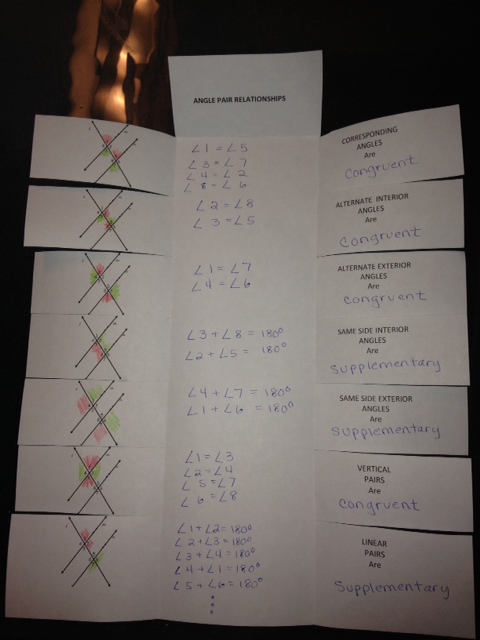 ANGLE PAIR RELATIONSHIPS
∠1 = ∠5
∠3 = ∠7
∠4 = ∠2
∠8 = ∠6
CORRESPONDING
ANGLES
Are
Congruent
∠2 = ∠8
∠3 = ∠5
ALTERNATE INTERIOR
ANGLES
Are
Congruent
∠1 = ∠7
∠4 = ∠6
ALTERNATE EXTERIOR
ANGLES
Are
Congruent
∠3 + ∠8 = 180°
∠2 + ∠5 = 180°
SAME SIDE INTERIOR
ANGLES
Are
Supplementary
∠4 + ∠7 = 180°
∠1 + ∠6 = 180°
SAME SIDE EXTERIOR
ANGLES
Are
Supplementary
∠1 = ∠3
∠2 = ∠4
∠5 = ∠7
∠6 = ∠8
VERTICAL
PAIRS
Are
Congruent
∠1 + ∠2 = 180°
∠2 + ∠3 = 180°
∠3 + ∠4 = 180°
∠4 + ∠1 = 180°
∠5 + ∠6 = 180°
LINEAR
PAIRS
Are
Supplementary